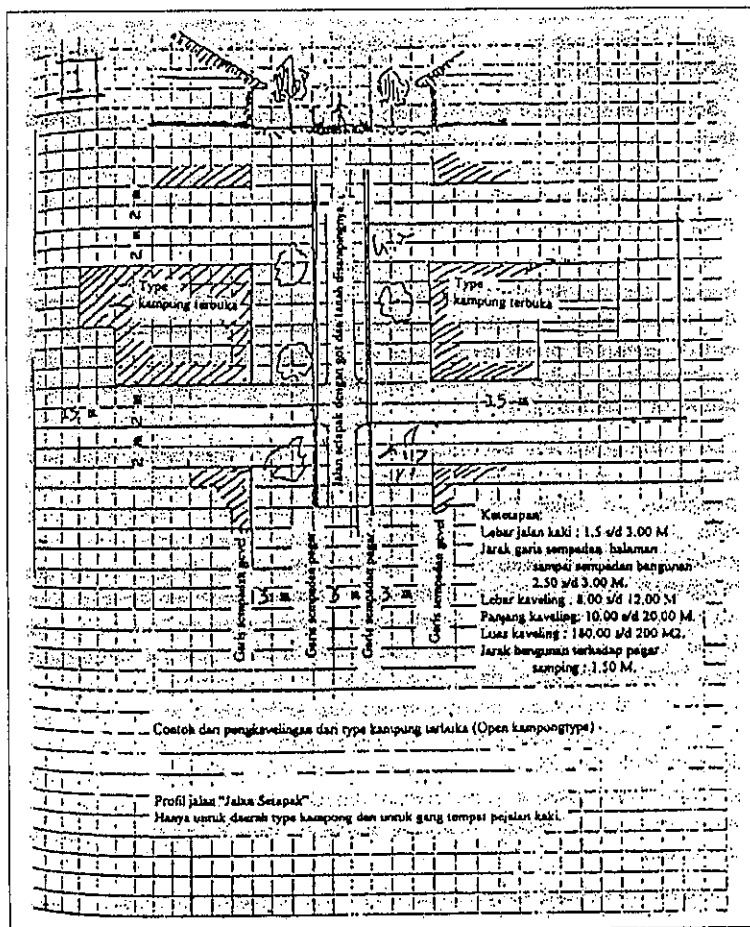 1
2 m
2 m
Type
kampung terbuka
Type
kampung terbuka
Jalan setapak dengan got dan tanah disampingnya.
15 m
15 m
2 m
2 m
Garis sempadan gevel
Garis sempadan pagar
Garis sempadan pagar.
Garis sempadan gevel
3 m
3 m
3 m
Ketetapan:
Lebar jalan kaki : 1.5 s/d 3.00 M
Jarak garis sempadan halaman
sampai sempadan bangunan
2.50 s/d 3.00 M.
Lebar kaveling : 8.00 s/d 12.00 M
Panjang kaveling: 10.00 s/d 20.00 M.
Luas kaveling : 180.00 s/d 200 M2.
Jarak bangunan terhadap pagar
samping : 1.50 M.
Contoh dari pengkavelingan dari type kampung terbuka (Open kampongtype)
Profil jalan "Jalan Setapak"
Hanya untuk daerah type kampong dan untuk gang tempat pejalan kaki.